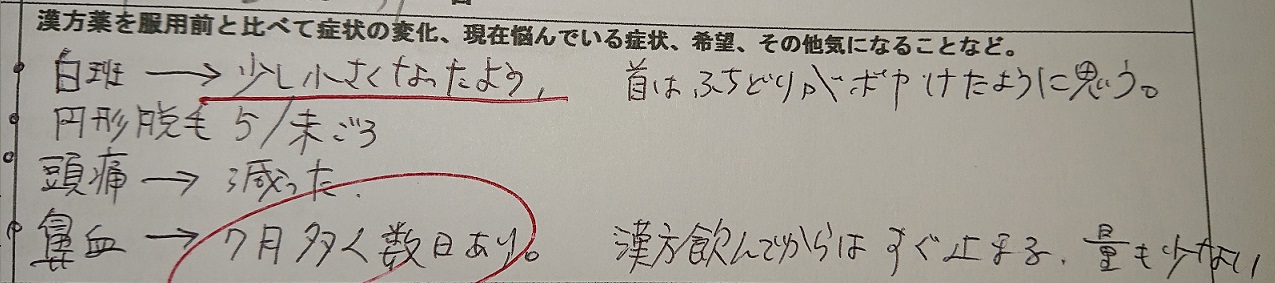 漢方薬を服用前と比べて症状の変化、現在悩んでいる症状、希望、その他気になることなど。
白班 → 少し小さくなったよう, 首はふちどりがボヤけたように思う。
円形脱毛 5/末ごろ
頭痛 → 減った.
鼻血 → 7月多く数日あり。 漢方飲んでからはすぐ止まる、量も少ない